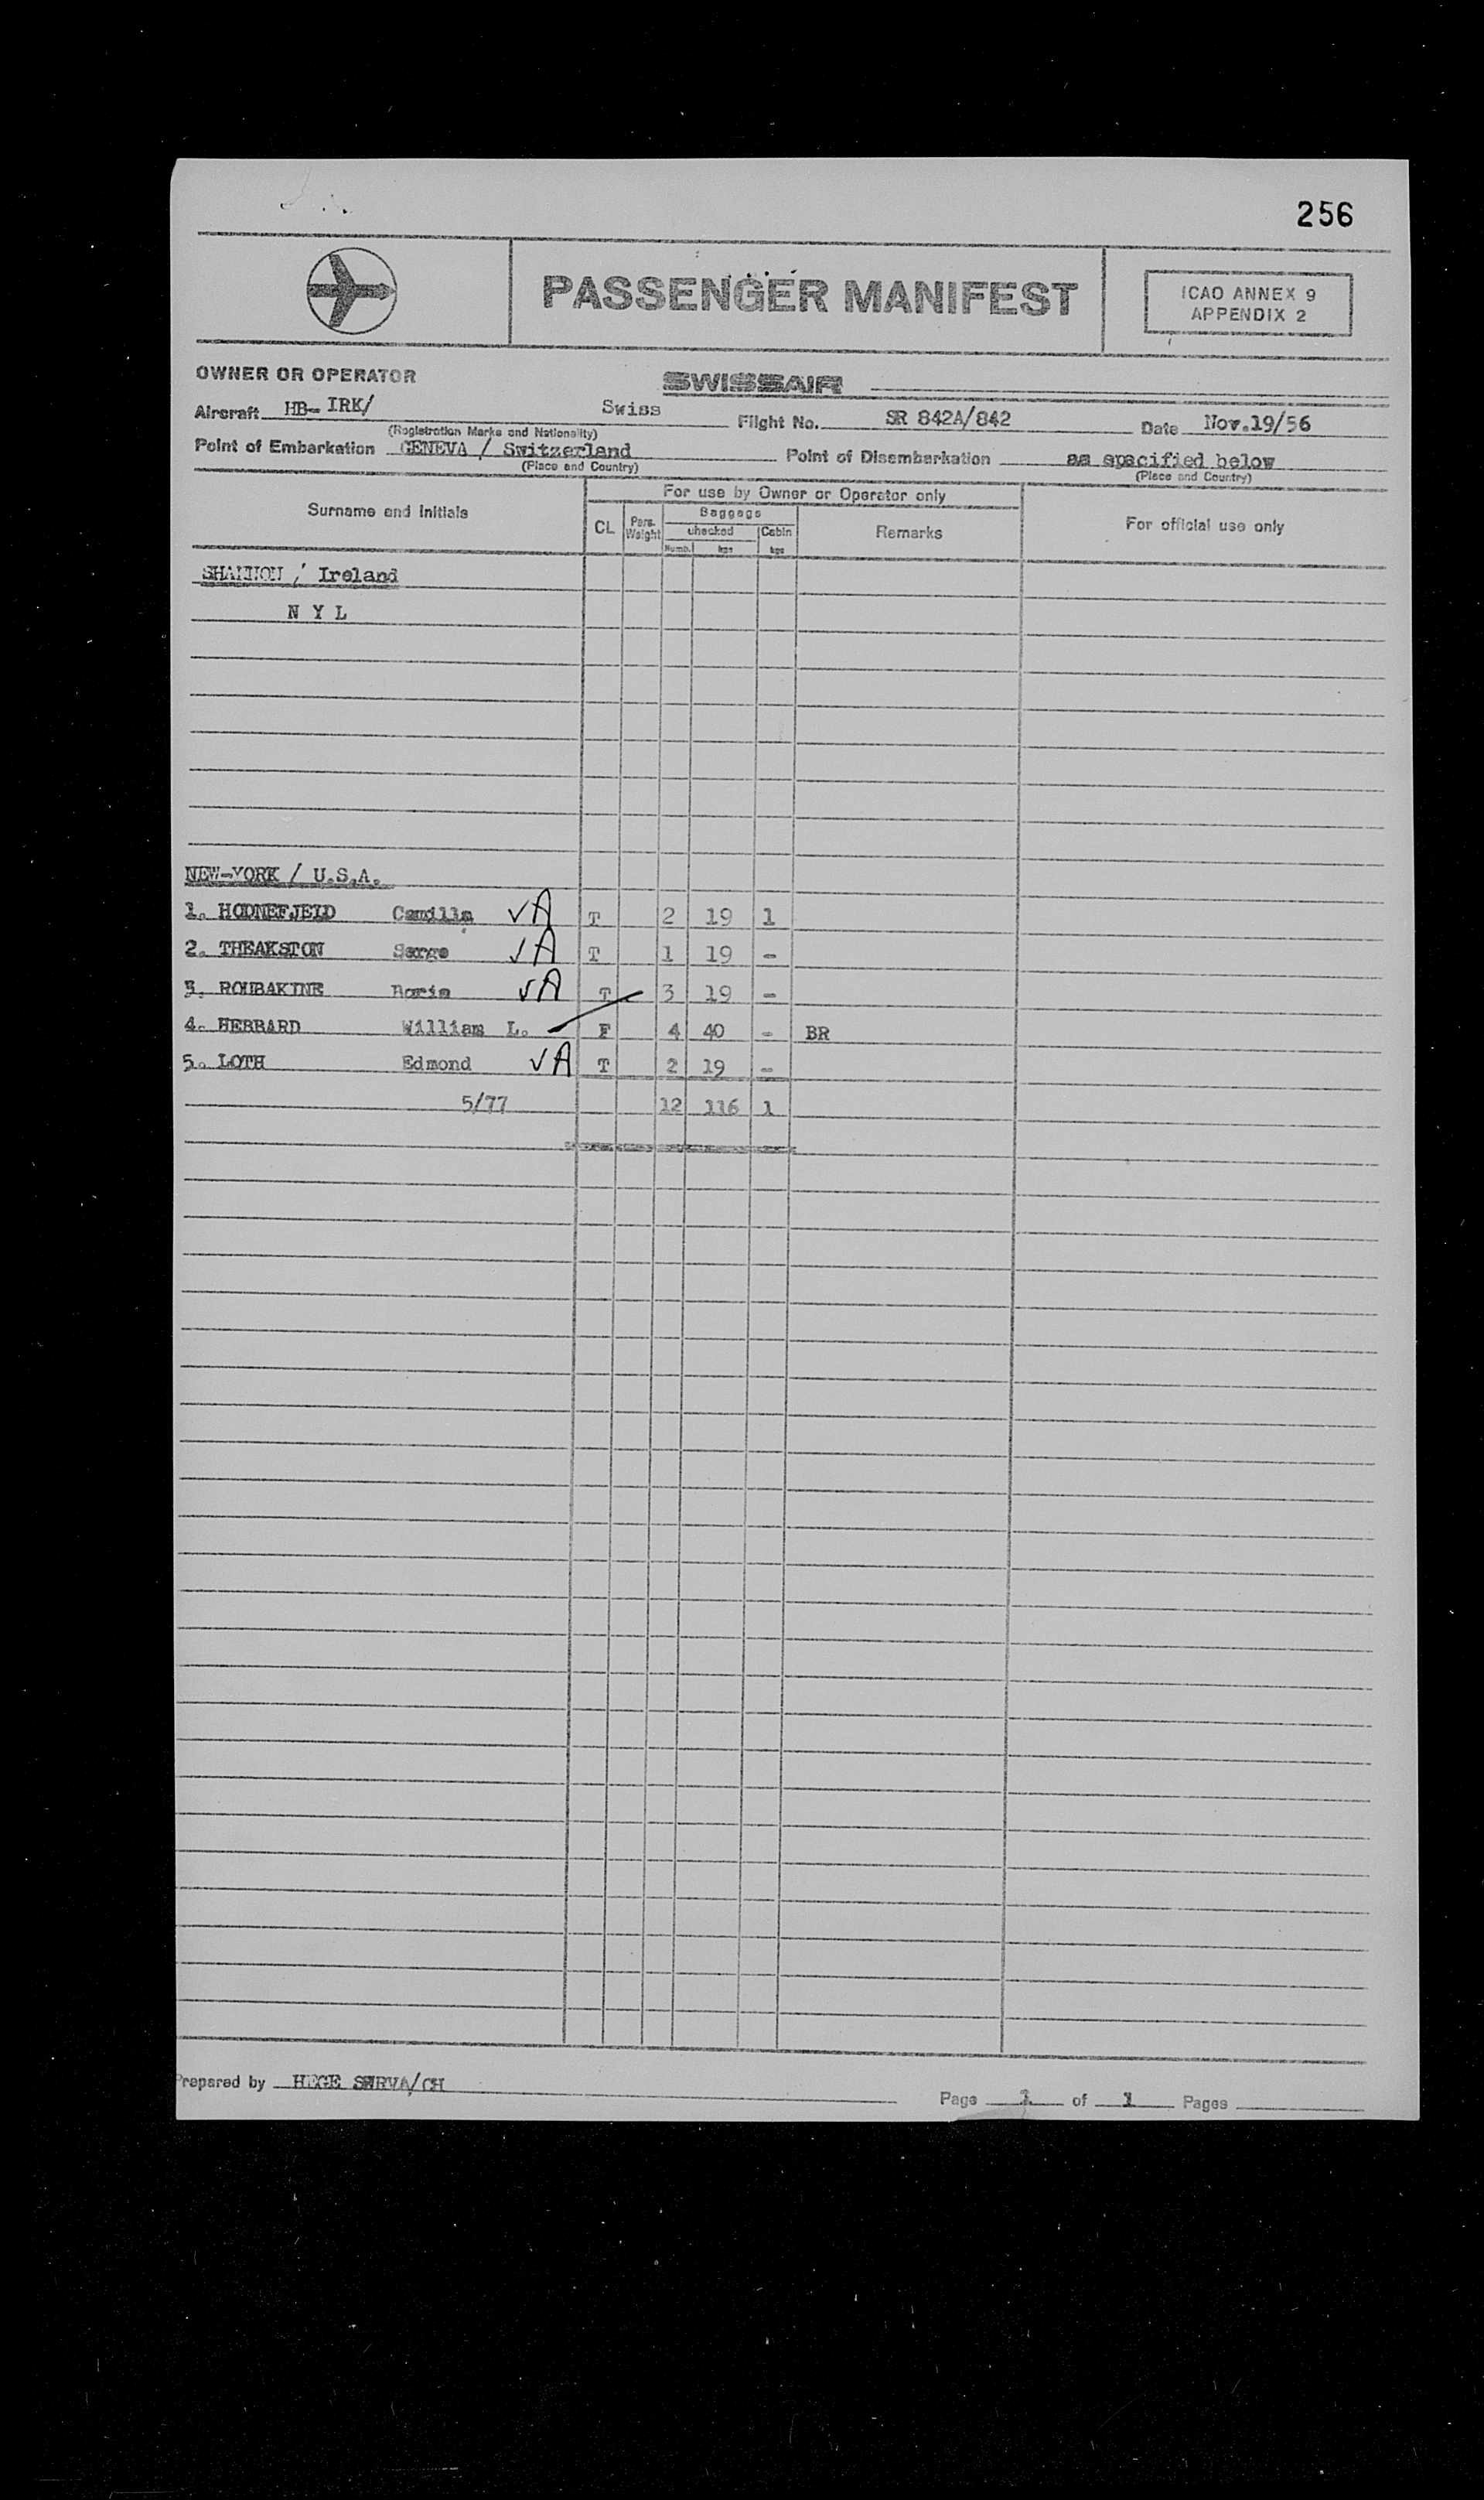 256
PASSENGER MANIFEST
ICAO ANNEX 9
APPENDIX 2
OWNER OR OPERATOR SWISSAIR
Aircraft HB- IRK/ Swiss Flight No. SR 842A/842 Date Nov.19/56
(Registration Marks and Nationality)
Point of Embarkation GENEVA / Switzerland Point of Disembarkation as specified below
(Place and Country) (Place and Country)
Surname and Initials For use by Owner or Operator only For official use only
CL Pers. Weight Baggage Remarks
checked Cabin
Numb. kgs kgs
SHANNON / Ireland
N Y L
NEW-YORK / U.S.A.
1. HODNEFJELD Camilla VA T 2 19 1
2. THEAKSTON Serge VA T 1 19 -
3. ROUBAKINE Boris VA T 3 19 -
4. HEBBARD William L. F 4 40 - BR
5. LOTH Edmond VA T 2 19 -
5/77 12 116 1
Prepared by HEGE /CH
Page 1 of 1 Pages